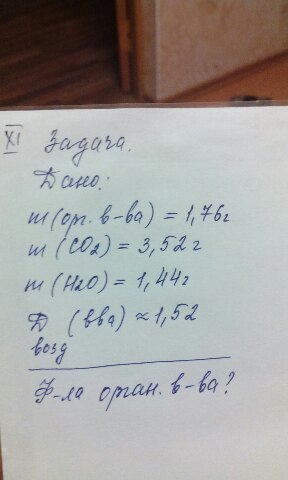 XI Задача.
Дано:
m (орг. в-ва) = 1,76г
m (CO2) = 3,52 г
m (H2O) = 1,44г
Д (вва) ≈ 1,52
возд
Ф-ла орган. в-ва?